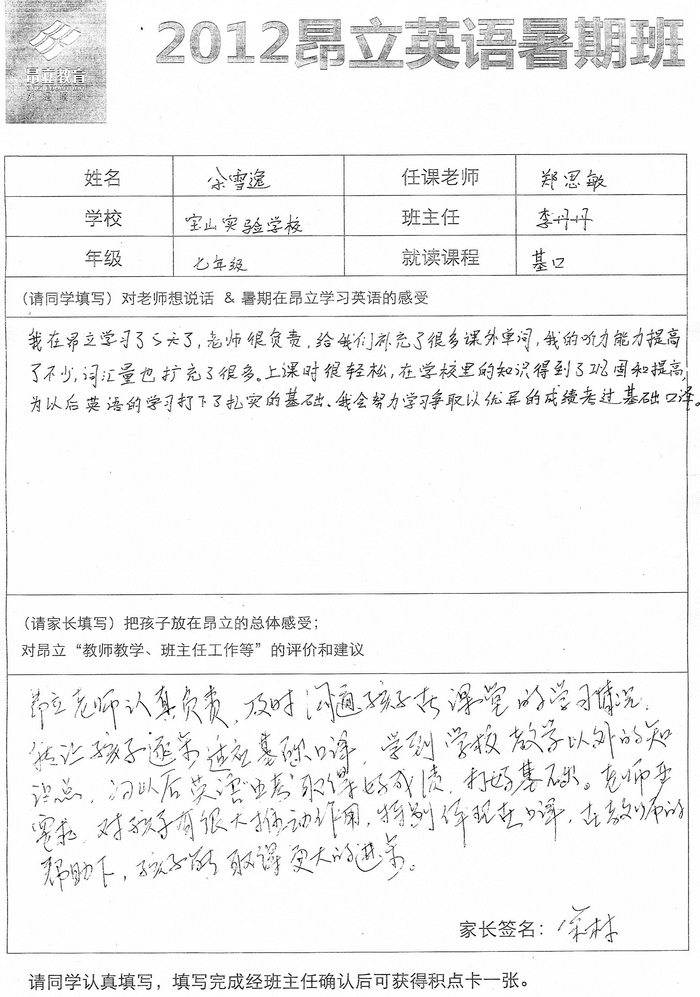 昂立教育
2012昂立英语暑期班
姓名 余雪逸 任课老师 郑思敏
学校 宝山实验学校 班主任 李丹丹
年级 七年级 就读课程 基口
(请同学填写) 对老师想说话 & 暑期在昂立学习英语的感受
我在昂立学习了5天了,老师很负责,给我们补充了很多课外单词,我的听力能力提高
了不少,词汇量也扩充了很多。上课时很轻松,在学校里的知识得到了巩固和提高,
为以后英语的学习打下了扎实的基础、我会努力学习争取以优异的成绩考过基础口译。
(请家长填写) 把孩子放在昂立的总体感受;
对昂立“教师教学、班主任工作等”的评价和建议
昂立老师认真负责,及时沟通孩子在课堂的学习情况,
能让孩子逐步适应基础口译,学到学校教学以外的知
识点,为以后英语中考取得好成绩,打好基础。老师严
要求,对孩子有很大推动作用,特别体现在口译,在教师的
帮助下,孩子能取得更大的进步。
家长签名:
请同学认真填写,填写完成经班主任确认后可获得积点卡一张。